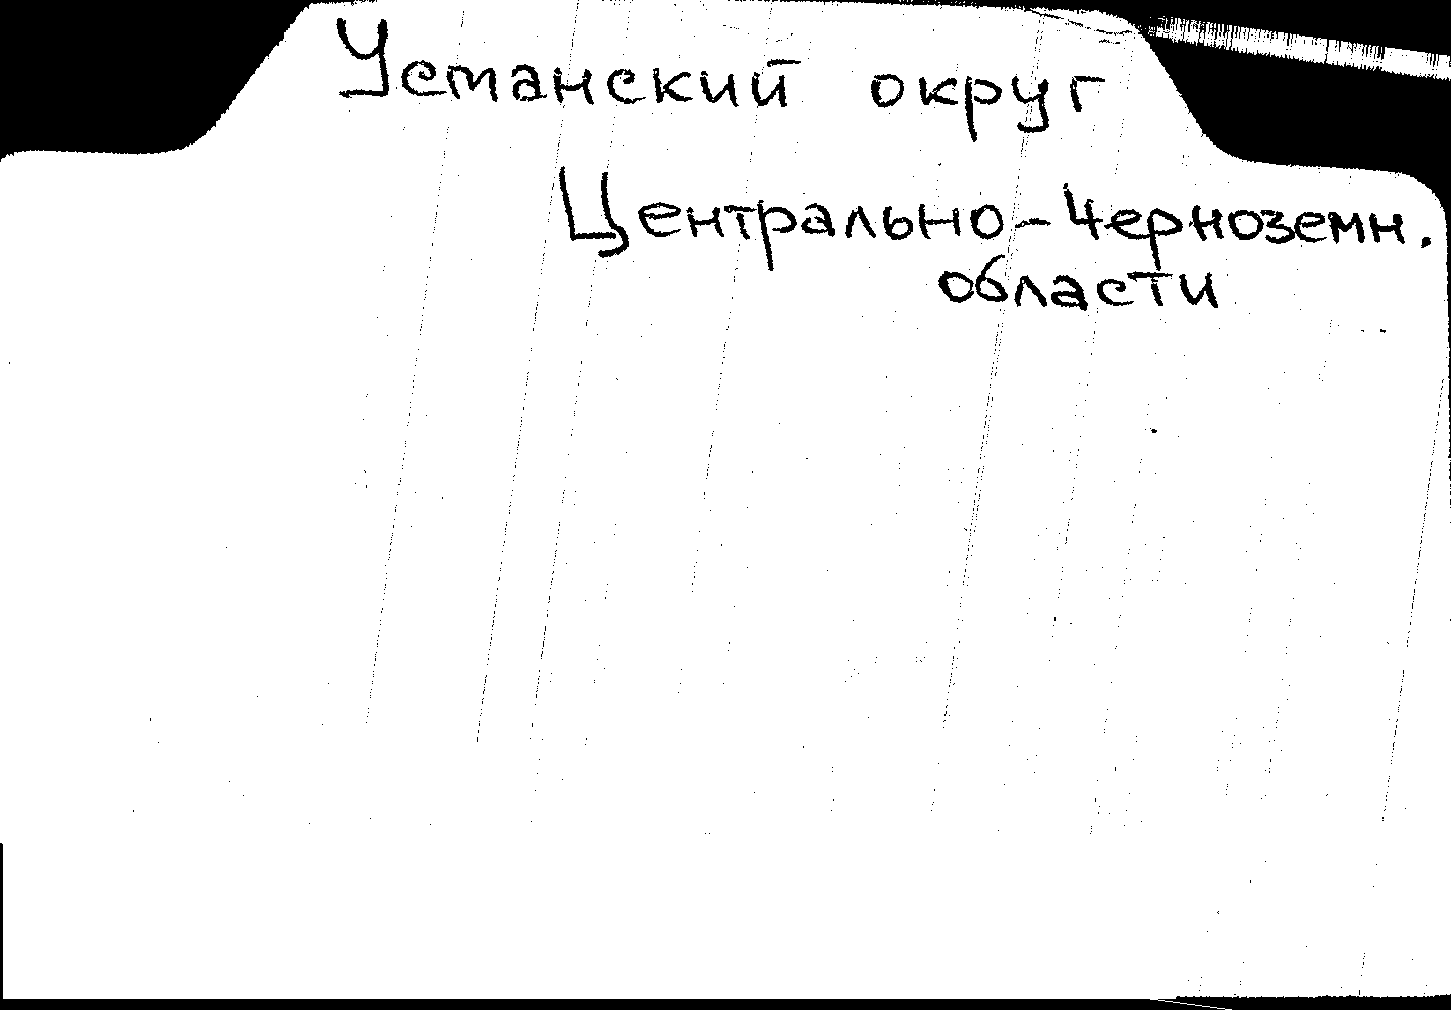 Устанский округ
Центрально-Черноземн.
области